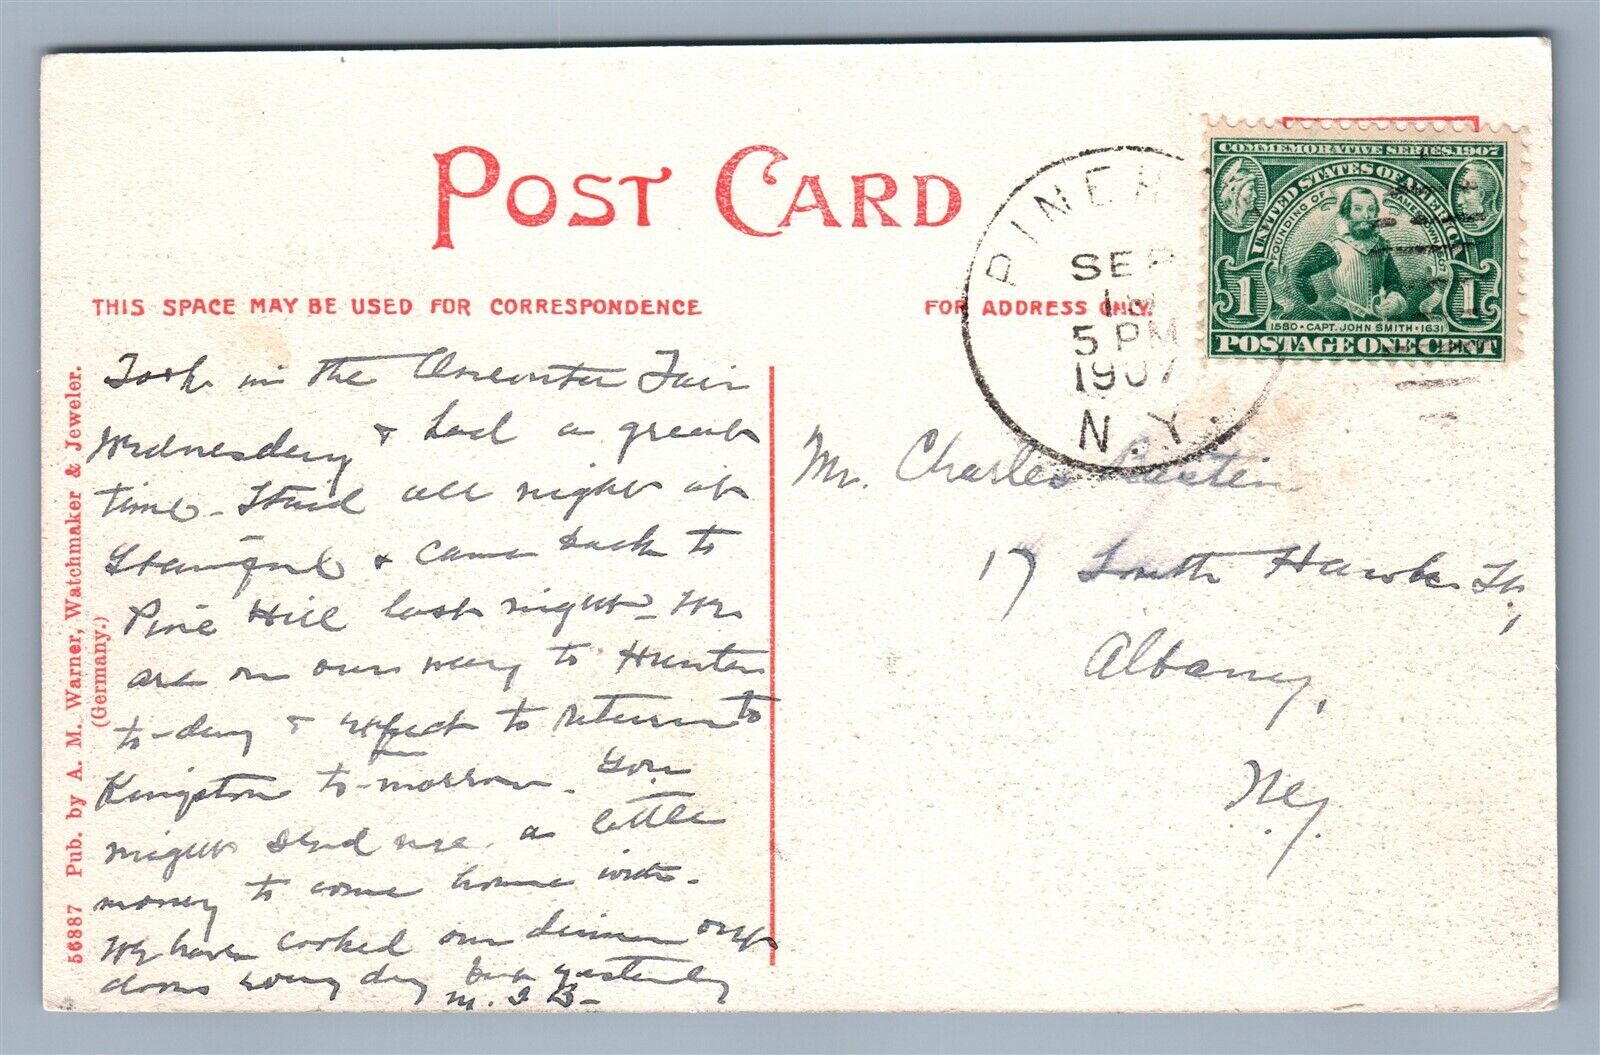 POST CARD
THIS SPACE MAY BE USED FOR CORRESPONDENCE
FOR ADDRESS ONLY.
PINEH
SEP
5 PM
1907
N.Y.
COMMEMORATIVE SERIES 1907
UNITED STATES OF AMERICA
FOUNDING OF JAMESTOWN 1607
1 1
1580 • CAPT. JOHN SMITH • 1631
POSTAGE ONE CENT
56887 Pub. by A. M. Warner, Watchmaker & Jeweler.
(Germany.)
Took in the Oneonta Fair
Wednesday & had a great
time - Staid all night at
Stamford & came back to
Pine Hill last night - We
are on our way to Hunter
to-day & expect to return to
Kingston to-morrow. You
might send me a little
money to come home with.
We have cooked our dinner out
doors every day but yesterday
M. I. B-
Mr. Charles
17 South Hawk St.,
Albany,
N.Y.